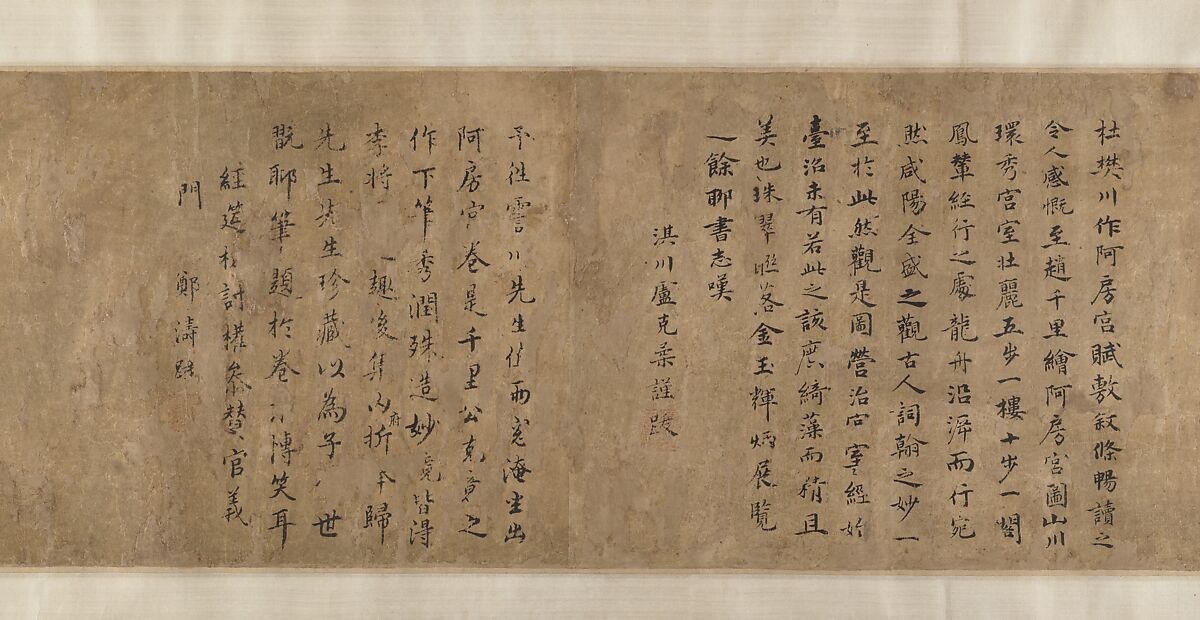 杜樊川作阿房宮賦敷叙條暢讀之
令人感慨至趙千里繪阿房宮圖山川
環秀宮室壯麗五步一樓十步一閣
鳳輦經行之處龍舟沿泝而行宛
然咸陽全盛之觀古人詞翰之妙一
至於此然觀是圖營治宮室經始
臺沼未有若此之該廣綺藻而精且
美也珠翠照落金玉輝炳展覽
之餘聊書志嘆
淇川盧克柔謹跋
予往霅川先生仕兩淹坐出
阿房宮卷是千里公克意之
作下筆秀潤殊造妙竟皆得
李將趣後集內府折本歸
先生先生珍藏以為子世
翫聊筆題於卷尔博笑耳
經筵檢討權參贊官義
門 鄭濤跋